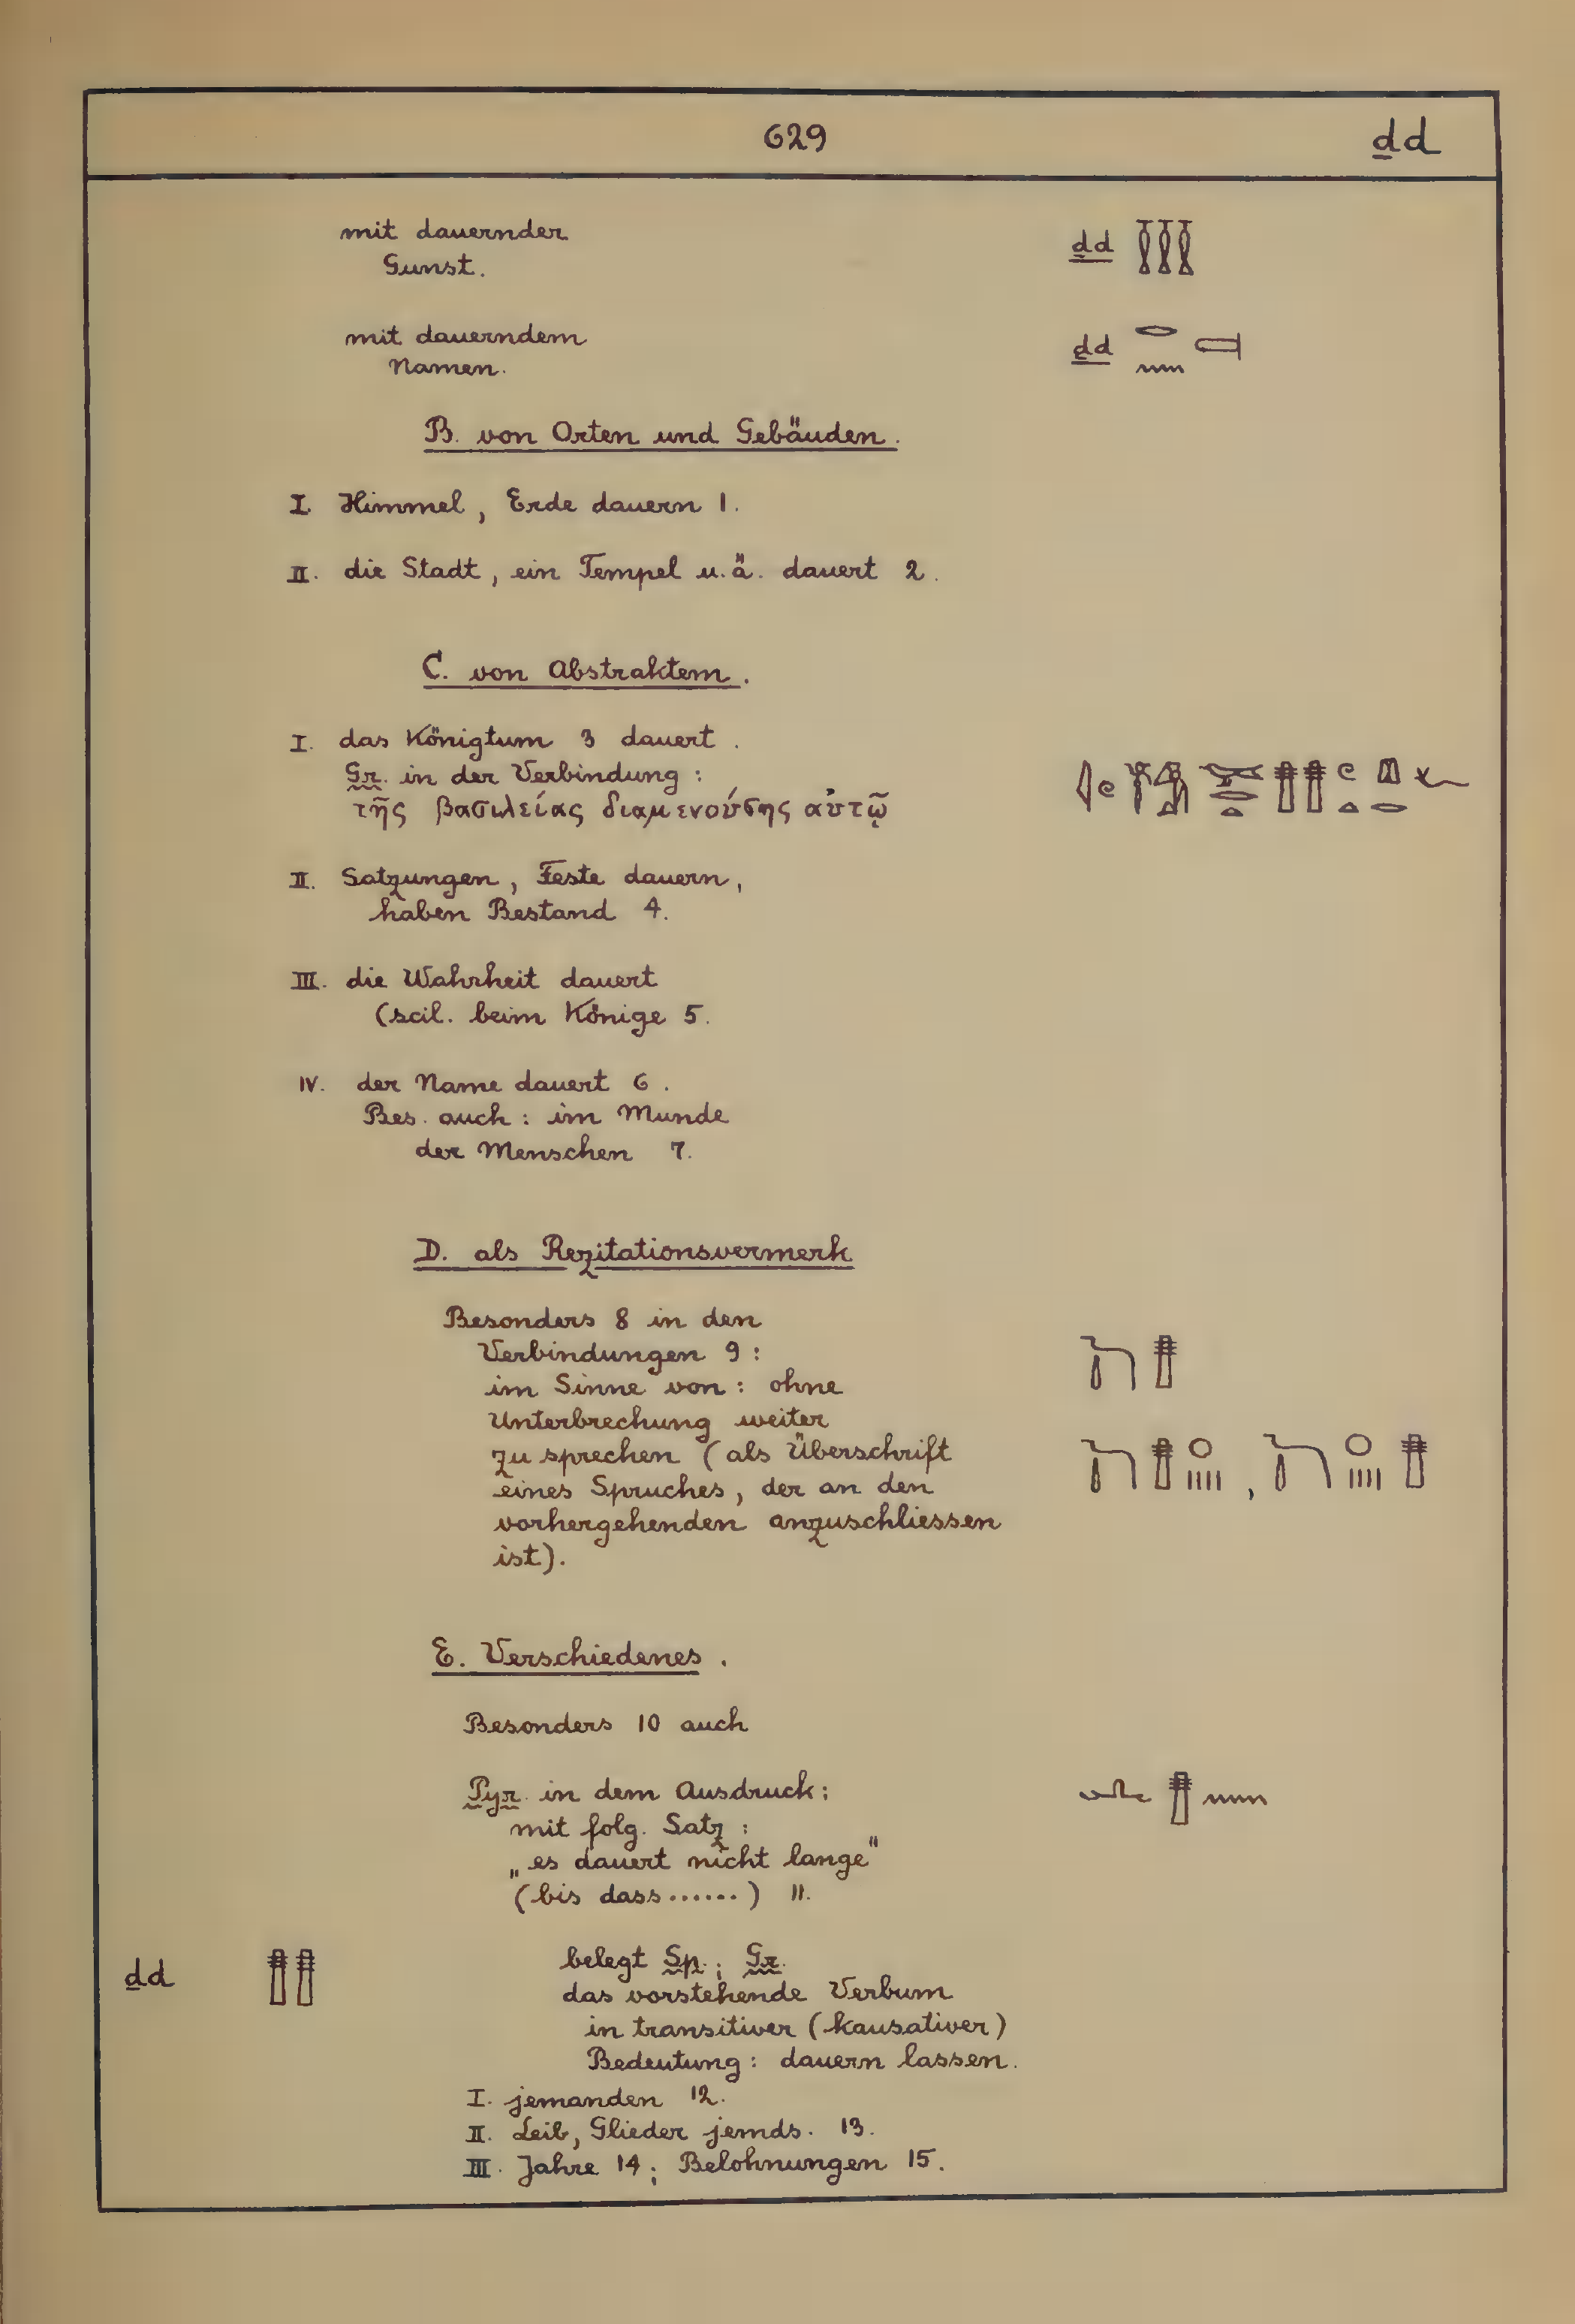 629 ḏd
mit dauernder
Gunst. ḏd
mit dauerndem ḏd
Namen.
B. von Orten und Gebäuden.
I. Himmel, Erde dauern 1.
II. die Stadt, ein Tempel u.ä. dauert 2.
C. von Abstraktem.
I. das Königtum 3 dauert.
Gr. in der Verbindung:
τῆς βασιλείας διαμενούσης αὐτῷ
II. Satzungen, Feste dauern,
haben Bestand 4.
III. die Wahrheit dauert
(scil. beim Könige 5.
IV. der Name dauert 6.
Bes. auch: im Munde
der Menschen 7.
D. als Rezitationsvermerk
Besonders 8 in den
Verbindungen 9:
im Sinne von: ohne
Unterbrechung weiter
zu sprechen (als Überschrift
eines Spruches, der an den
vorhergehenden anzuschliessen
ist).
E. Verschiedenes.
Besonders 10 auch
Pyr. in dem Ausdruck:
mit folg. Satz:
„es dauert nicht lange"
(bis dass......) 11.
ḏd 𓊽𓊽 belegt Sp.; Gr.
das vorstehende Verbum
in transitiver (kausativer)
Bedeutung: dauern lassen.
I. jemanden 12.
II. Leib, Glieder jemds. 13.
III. Jahre 14; Belohnungen 15.